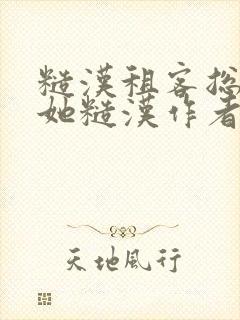 糙漢租客总
她糙漢作者
天地風行